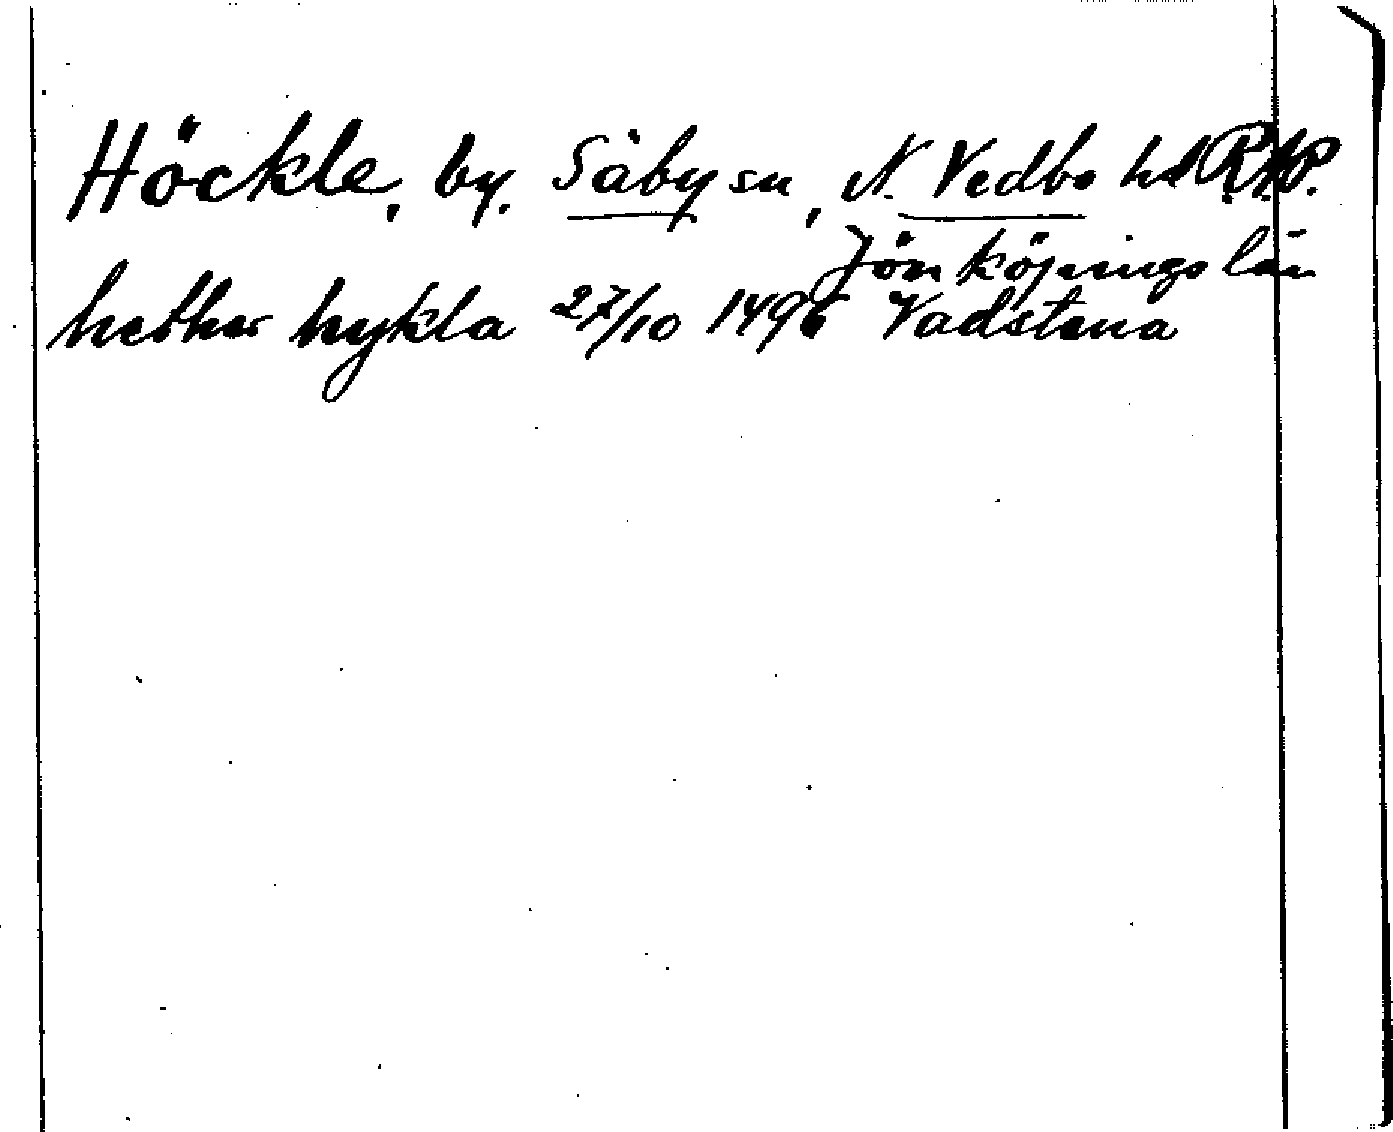 Höckle, by. Säby sn, N. Vedbo hd R.A.P.
Jönköpings län
hether hykla 27/10 1496 Vadstena